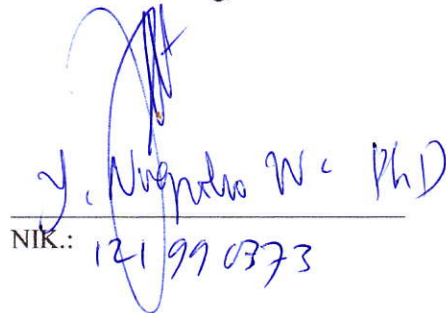 Y. Nugroho W. PhD
NIK.: 121990373